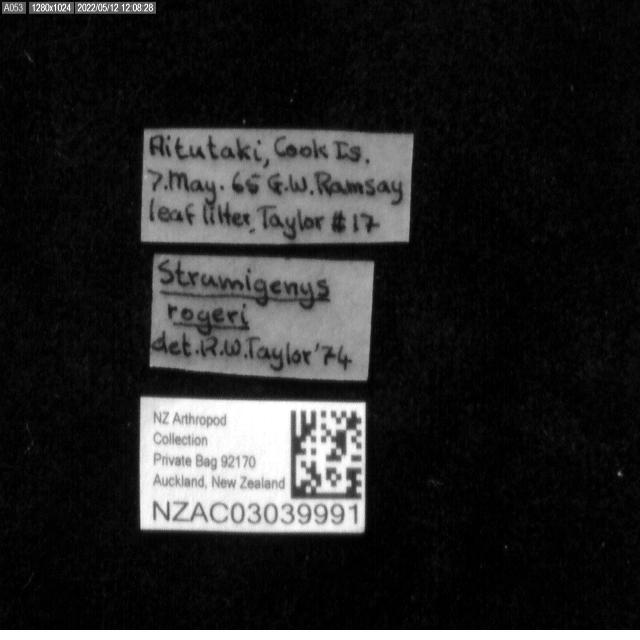 A053 1280x1024 2022/05/12 12:08:28
Aitutaki, Cook Is.
7.May.65 G.W.Ramsay
leaf litter, Taylor #17
Strumigenys
rogeri
det.R.W.Taylor'74
NZ Arthropod
Collection
Private Bag 92170
Auckland, New Zealand
NZAC03039991